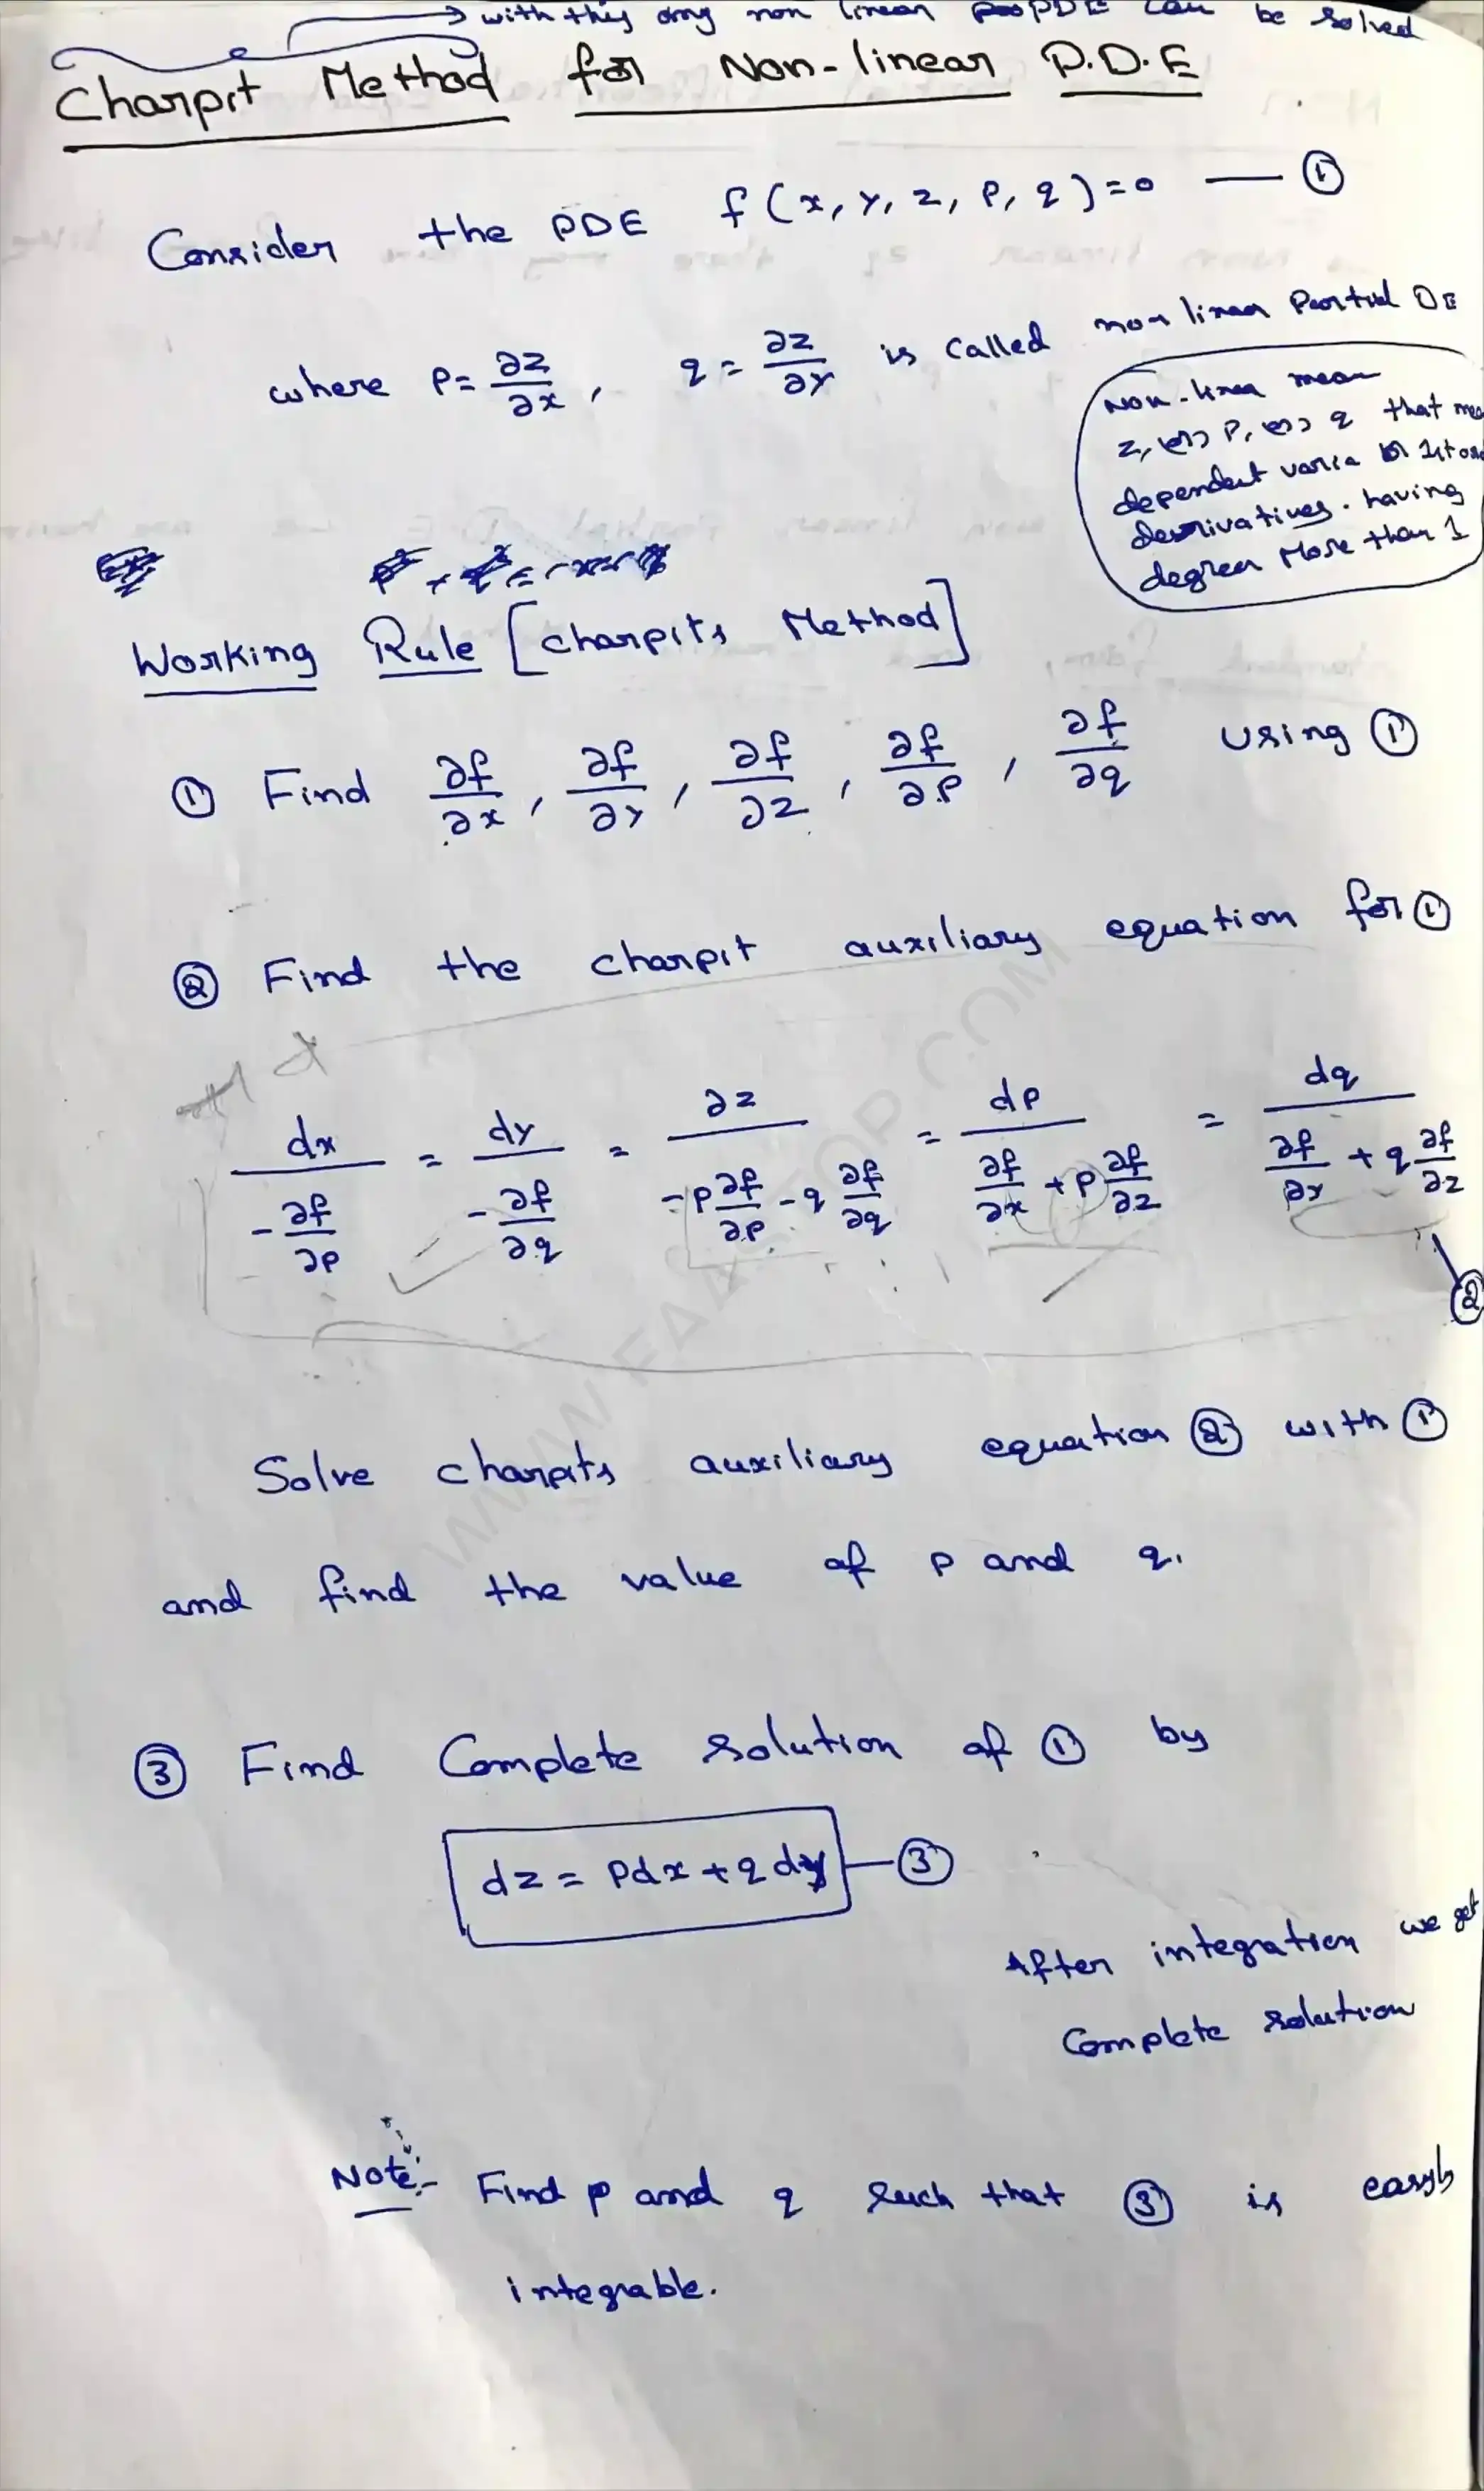 → with this any non linear PDE can be solved
Charpit Method for Non-linear P.D.E
Consider the PDE f(x, y, z, p, q)=0 — ①
where p = ∂z/∂x , q = ∂z/∂y is called non linear Partial DE
Non-linea mean
z, (or) p, (or) q that mea
dependent varia or 1st ord
derivatives. having
degree More than 1
Working Rule [charpits Method]
① Find ∂f/∂x , ∂f/∂y , ∂f/∂z , ∂f/∂p , ∂f/∂q using ①
② Find the charpit auxiliary equation for ①
dx/(-∂f/∂p) = dy/(-∂f/∂q) = ∂z/(-p ∂f/∂p - q ∂f/∂q) = dp/(∂f/∂x + p ∂f/∂z) = dq/(∂f/∂y + q ∂f/∂z)
②
Solve charpits auxiliary equation ② with ①
and find the value of p and q.
③ Find Complete solution of ① by
dz = pdx + q dy — ③
After integration we get
Complete solution
Note:- Find p and q such that ③ is easyly
integrable.
WWW.FAADTOP.COM